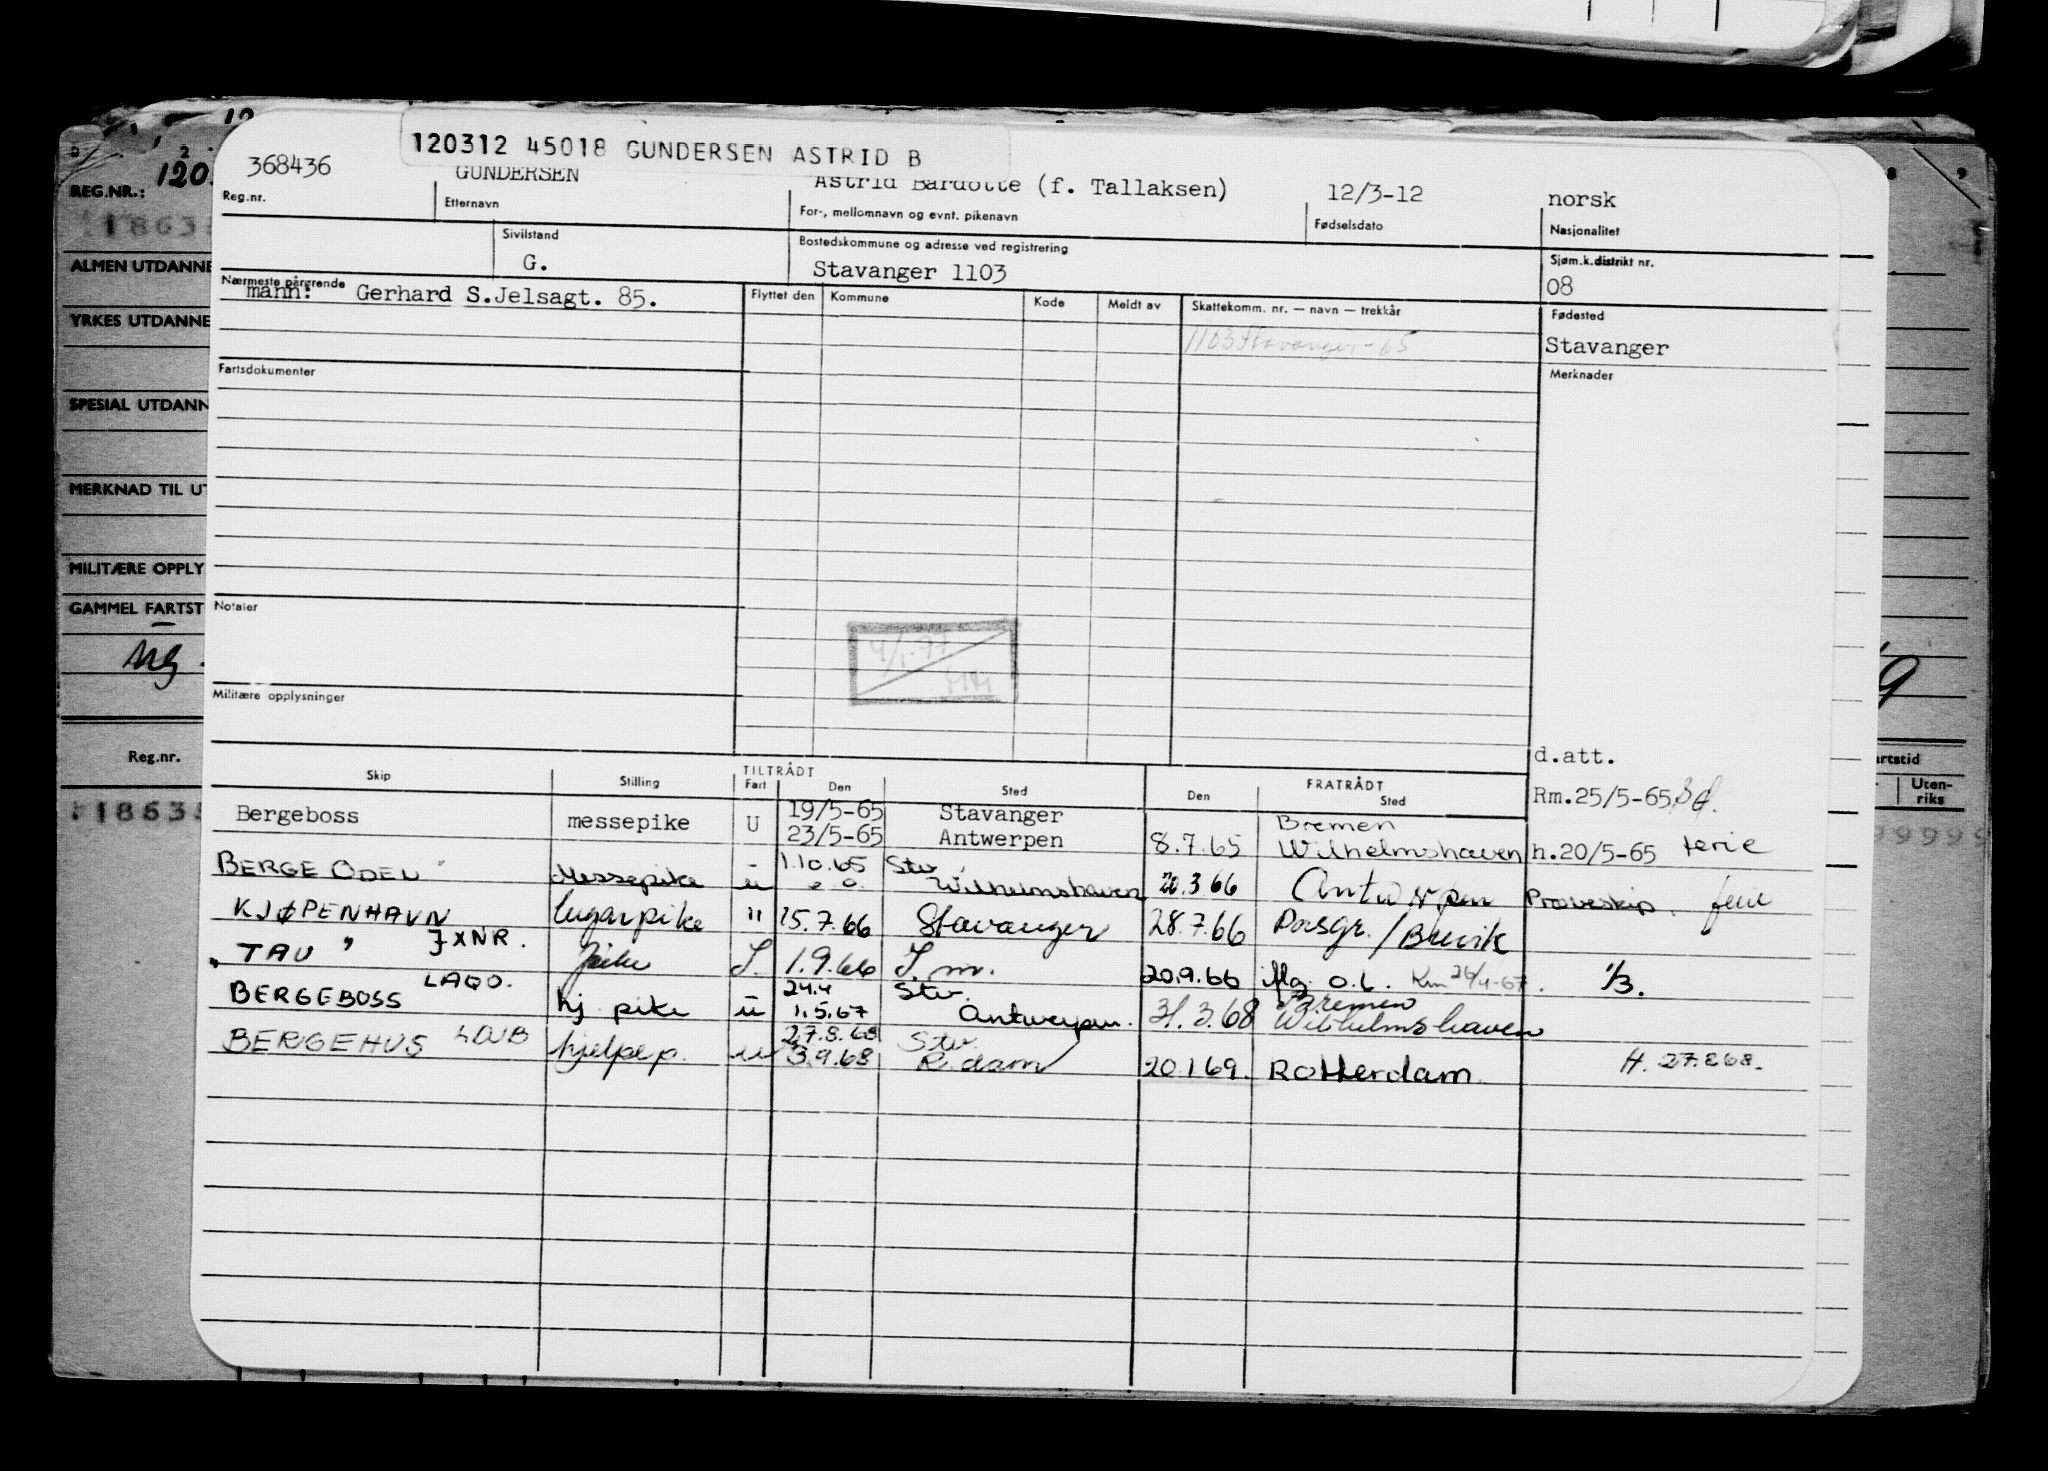 120312 45018 GUNDERSEN ASTRID B
368436 GUNDERSEN Astrid Bardotte (f. Tallaksen) 12/3-12 norsk
Reg.nr. Etternavn For-, mellomnavn og evnt. pikenavn Fødselsdato Nasjonalitet
Sivilstand Bostedskommune og adresse ved registrering Sjøm.k.distrikt nr.
G. Stavanger 1103 08
Nærmeste pårørende Flyttet den Kommune Kode Meldt av Skattekomm. nr. — navn — trekkår Fødested
mann: Gerhard S.Jelsagt. 85.
1103 Stavanger - 65 Stavanger
Fartsdokumenter Merknader
Notater
4/1-77
Militære opplysninger
d.att.
Skip Stilling TILTRÅDT FRATRÅDT
Fart Den Sted Den Sted
Rm.25/5-65
Bergeboss messepike U 19/5-65 Stavanger Bremen
23/5-65 Antwerpen 8.7.65 Wilhelmshaven h.20/5-65 ferie
BERGE ODEL " Messepike u 1.10.65 Stv.
Wilhelmshaven 20.3.66 Antwerpen Prøveskip. ferie
KJØPENHAVN lugarpike " 15.7.66 Stavanger 28.7.66 Porsgr. / Brevik
TAU " JXNR. pike J. 1.9.66 J. m. 20.9.66 Mg. o.l. Rm 26/4-67. 1/3.
BERGEBOSS LAQO. hj. pike u 24.4 Stv. Bremen
1.5.67 Antwerpen. 31.3.68 Wilhelmshaven
BERGEHUS LDUB hjelpep. u 27.8.68 Stv.
3.9.68 R.dam 20.1.69. Rotterdam. H. 27.8.68.
REG.NR.: 120
1863
ALMEN UTDANNE
YRKES UTDANNE
SPESIAL UTDANN
MERKNAD TIL UT
MILITÆRE OPPLY
GAMMEL FARTST
Reg.nr.
1863
artstid
Uten-
riks
99999